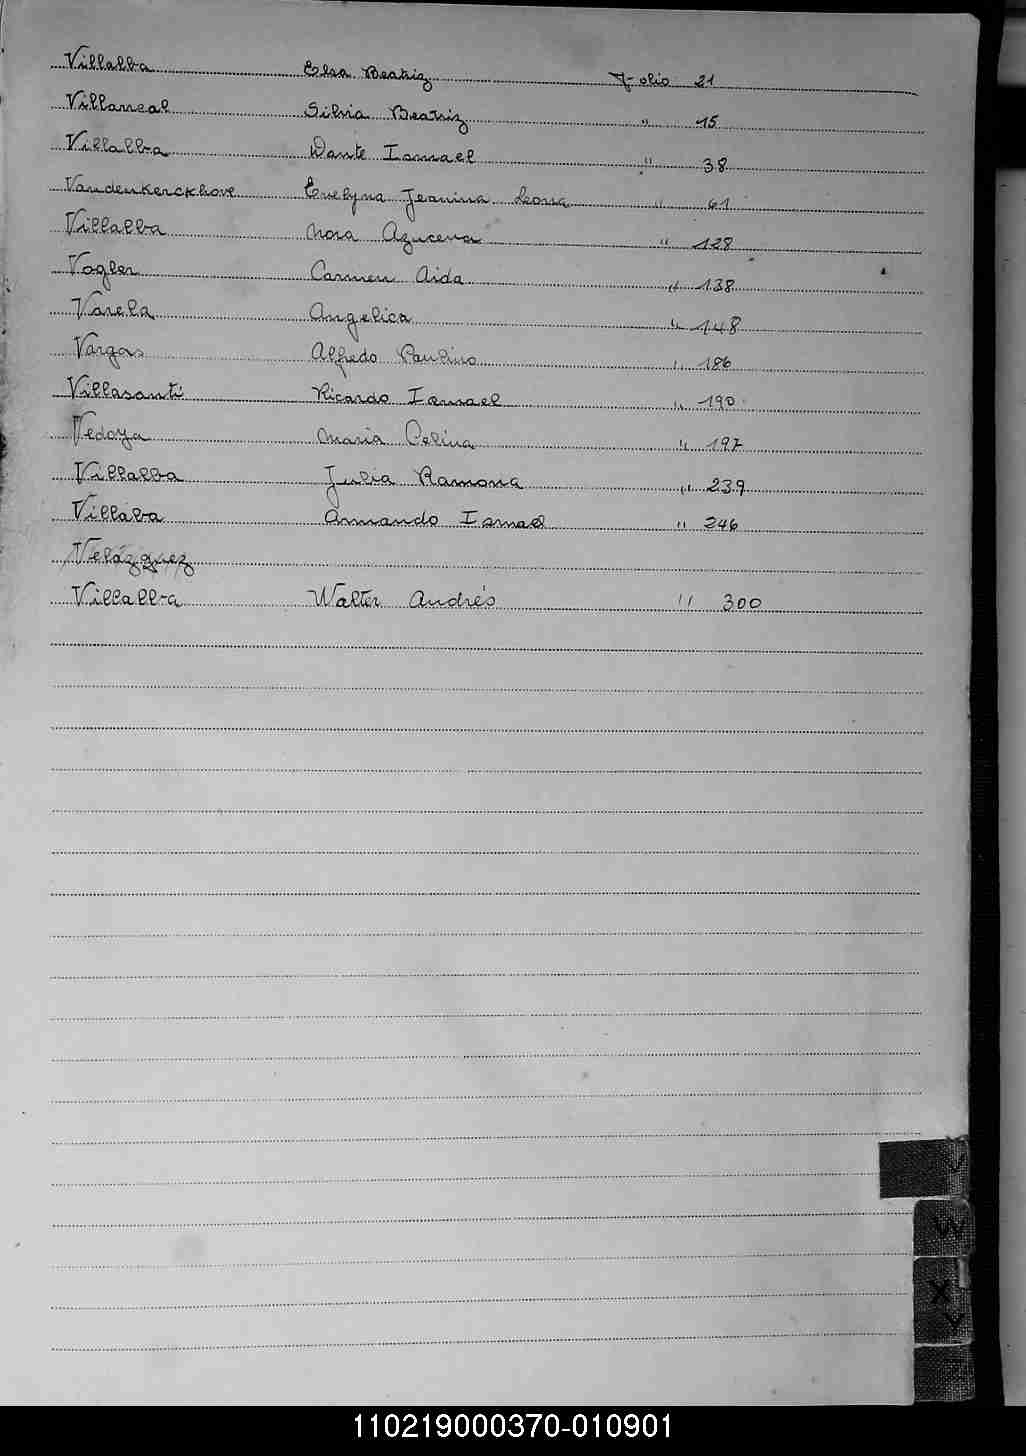 Villalba Elsa Beatriz Folio 21
Villarreal Silvia Beatriz " 15
Villalba Dante Ismael " 38
Vandenkerckhove Evelyna Jeanina Leona " 61
Villalba Nora Azucena " 128
Vogler Carmen Aida " 138
Varela Angelica " 148
Vargas Alfredo Paulino " 186
Villasanti Ricardo Ismael " 190
Vedoya Maria Celina " 197
Villalba Julia Ramona " 239
Villalba Armando Ismael " 246
Velázquez
Villalba Walter Andrés " 300
V
W
X
Y
110219000370-010901